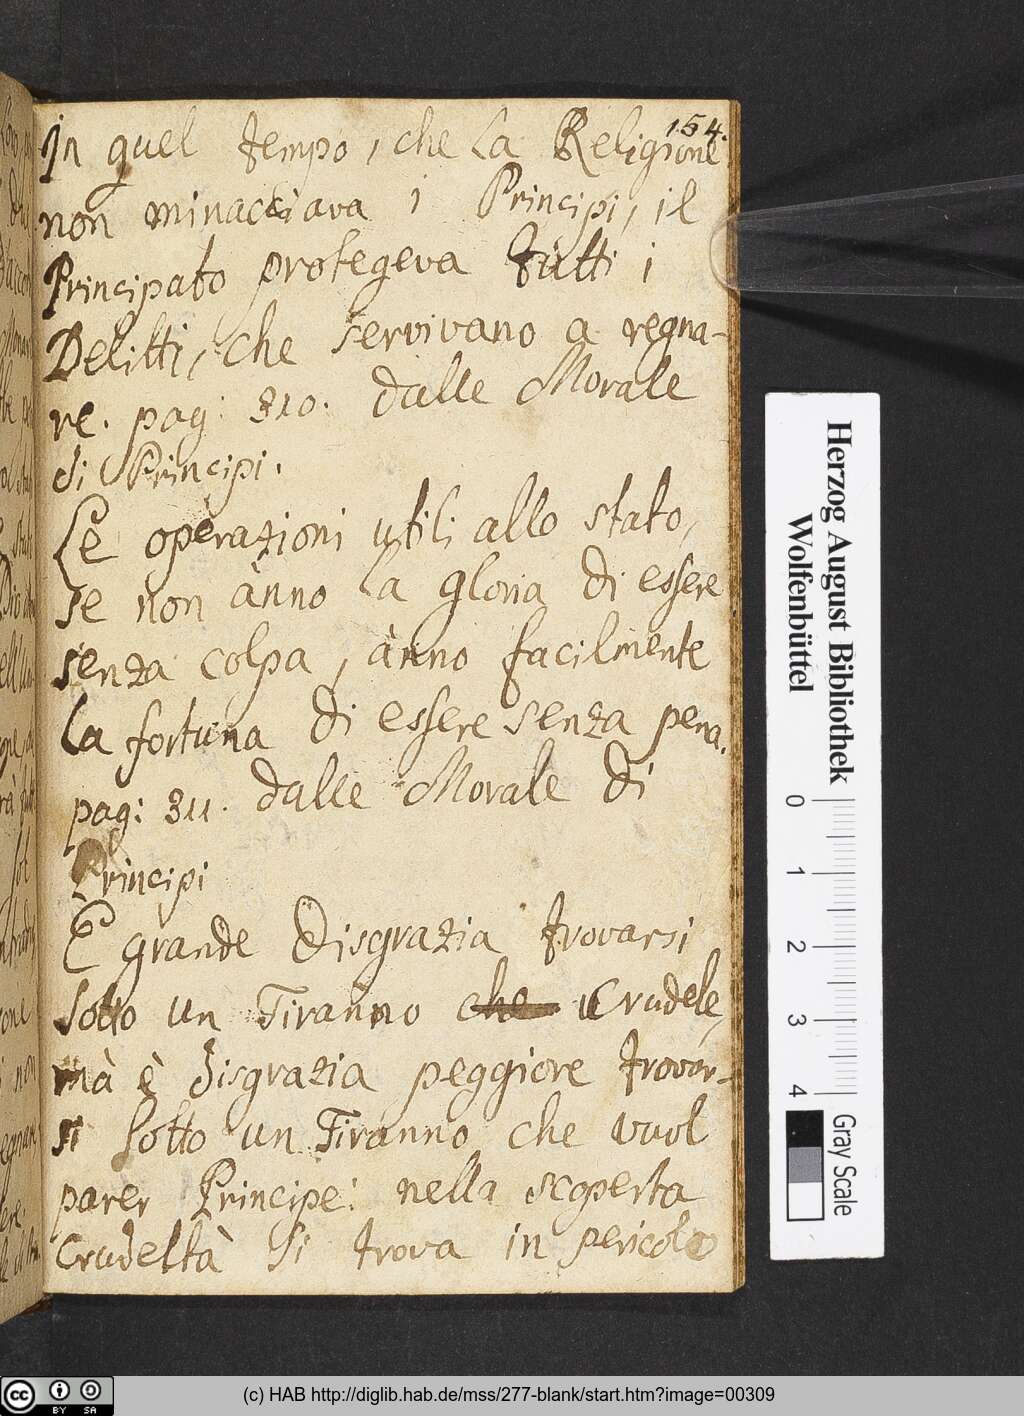 154.
In quel tempo, che la Religione
non minacciava i Principi, il
Principato protegeva tutti i
Delitti, che servivano a regna-
re. pag: 310. dalle Morale
di Principi.
Le operazioni utili allo stato,
se non ànno la gloria di essere
senza colpa, ànno facilmente
la fortuna di essere senza pena.
pag: 311. dalle Morale di
Principi
È grande Disgrazia trovarsi
sotto un Tiranno che Crudele,
mà è disgrazia peggiore trovar-
si sotto un Tiranno che vuol
parer Principe: nella scoperta
Crudeltà si trova in pericolo
Herzog August Bibliothek
Wolfenbüttel
0 1 2 3 4
Gray Scale
cc BY SA
(c) HAB http://diglib.hab.de/mss/277-blank/start.htm?image=00309